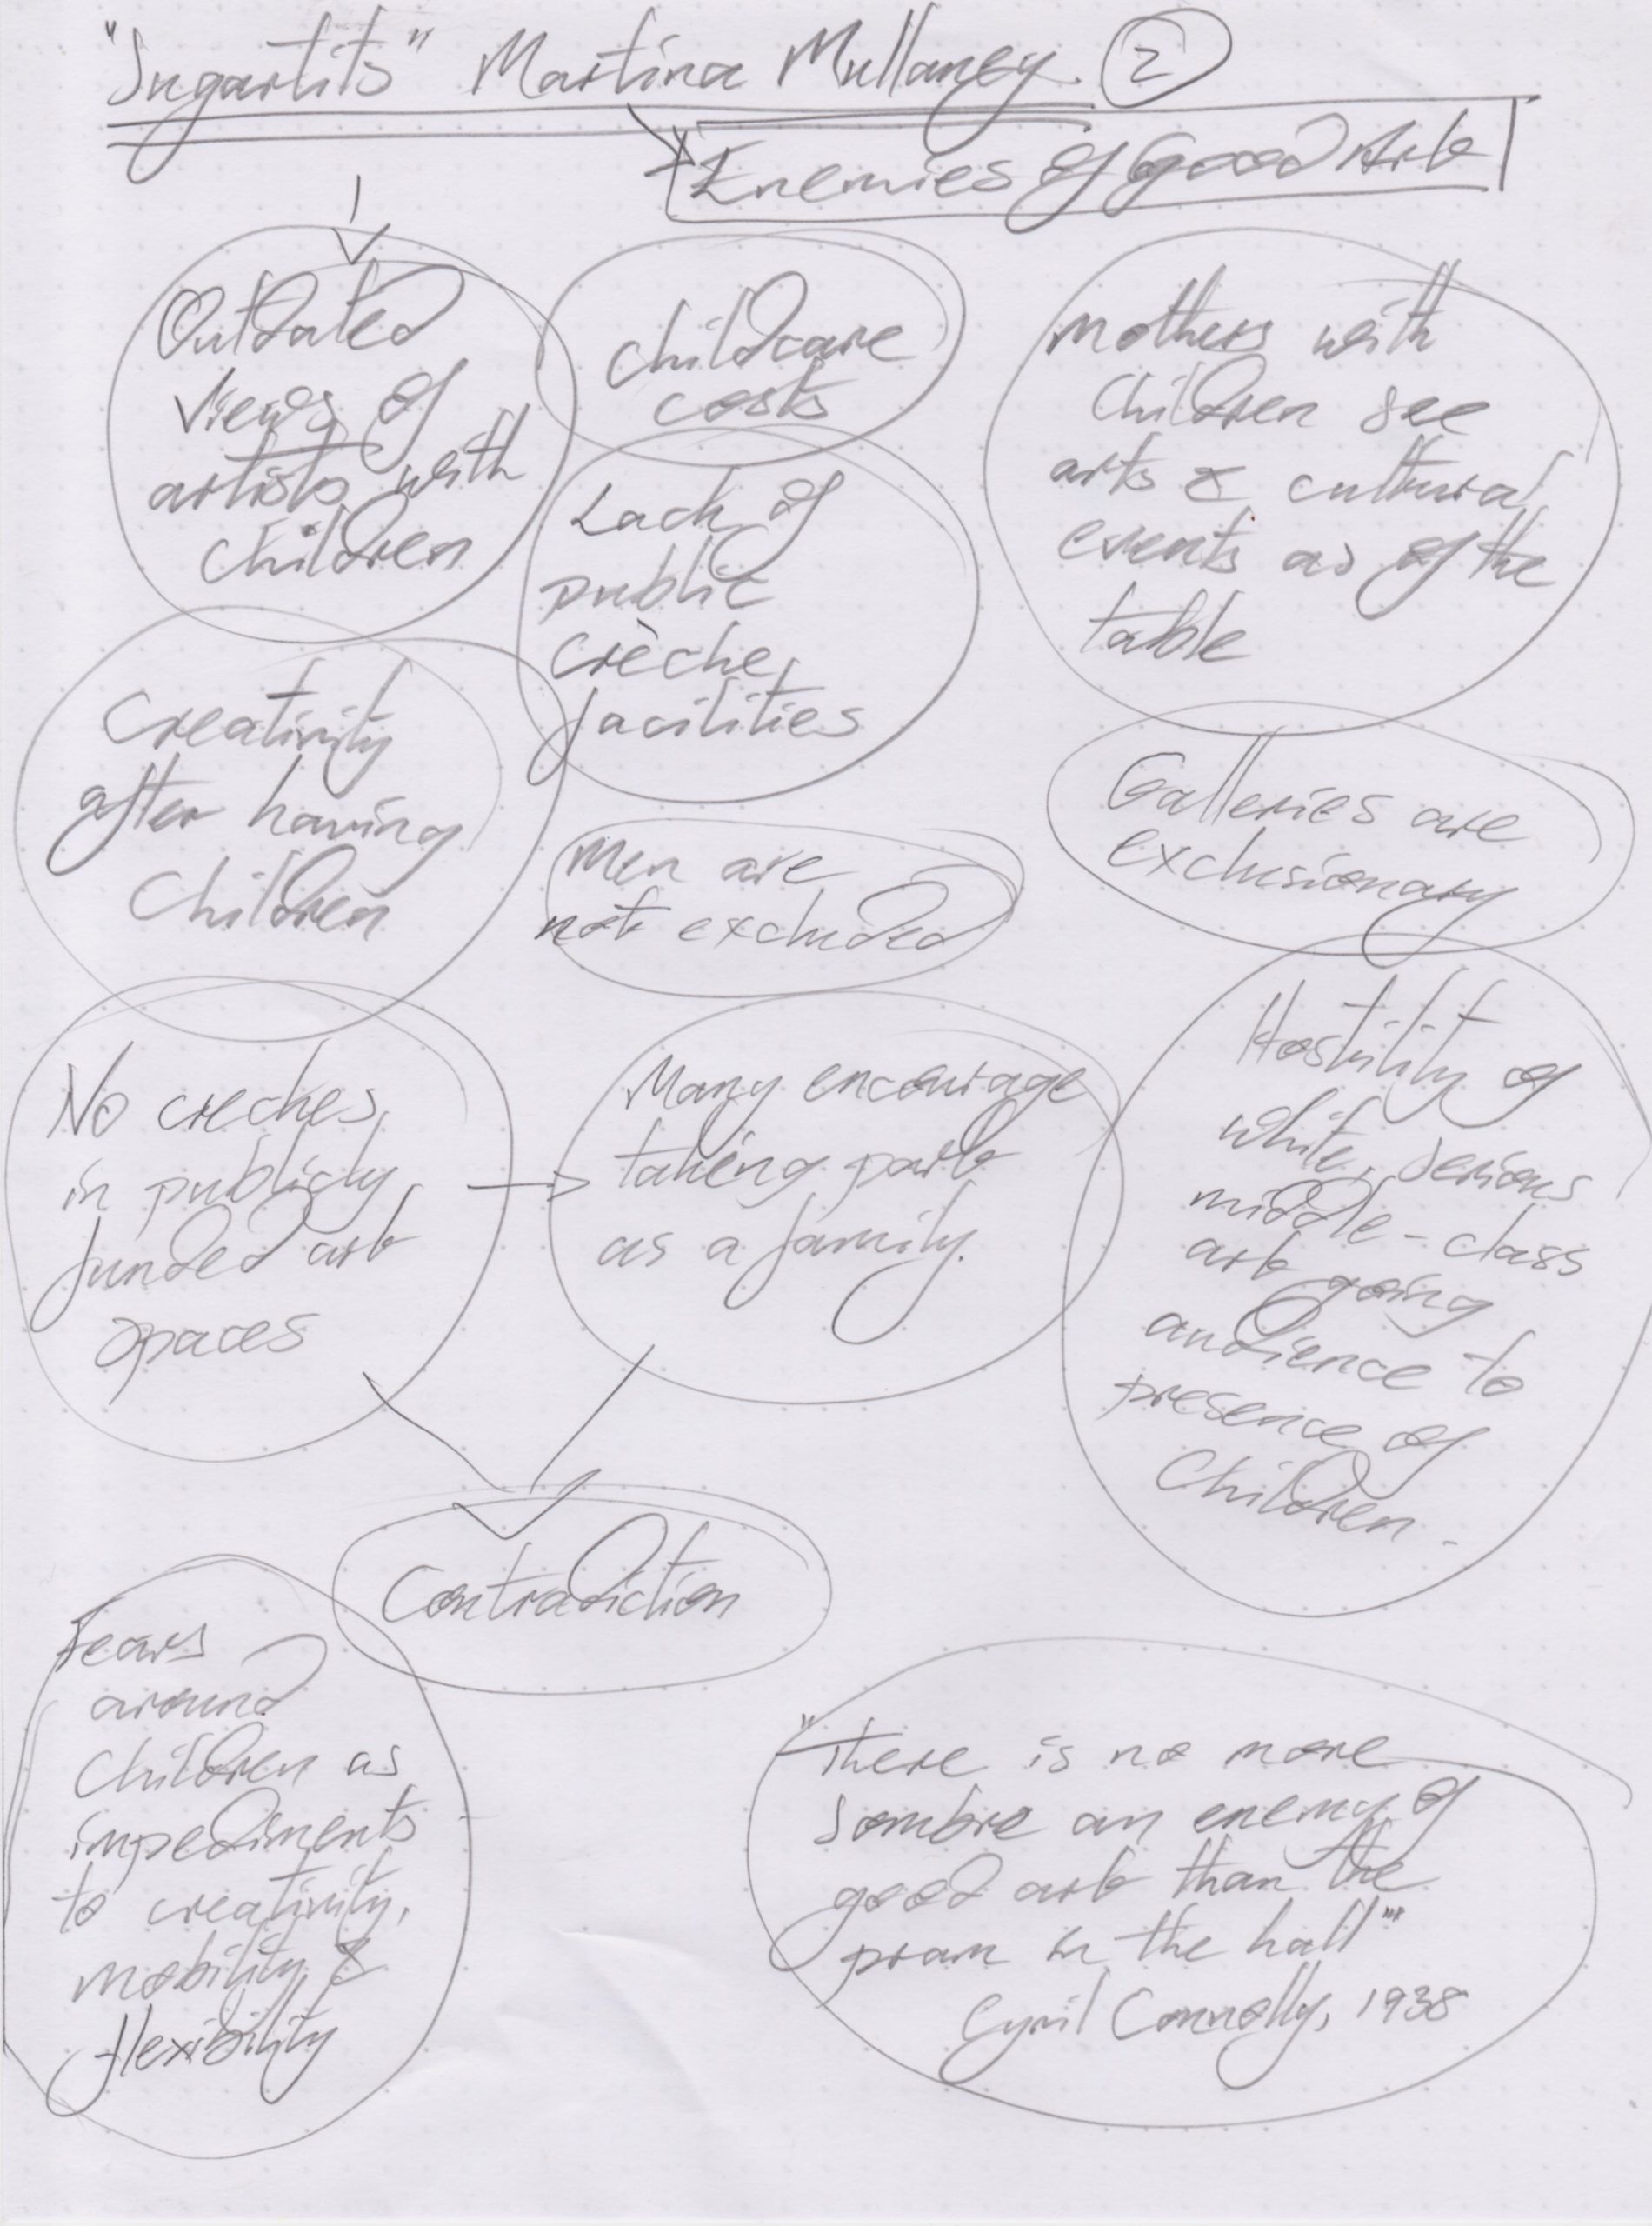 "Sugartits" Martina Mullaney. 2
Enemies of Good Art
Outdated
views of
artists with
children
childcare
costs
mothers with
children see
arts & cultural
events as of the
table
Lack of
public
crèche
facilities
Creativity
after having
children
Men are
not excluded
Galleries are
exclusionary
No creches
in publicly
funded art
spaces
Many encourage
taking part
as a family.
Hostility of
white, serious
middle-class
art going
audience to
presence of
children.
Contradiction
Fears
around
children as
impediments
to creativity,
mobility &
flexibility
"There is no more
sombre an enemy of
good art than the
pram in the hall"
Cyril Connolly, 1938